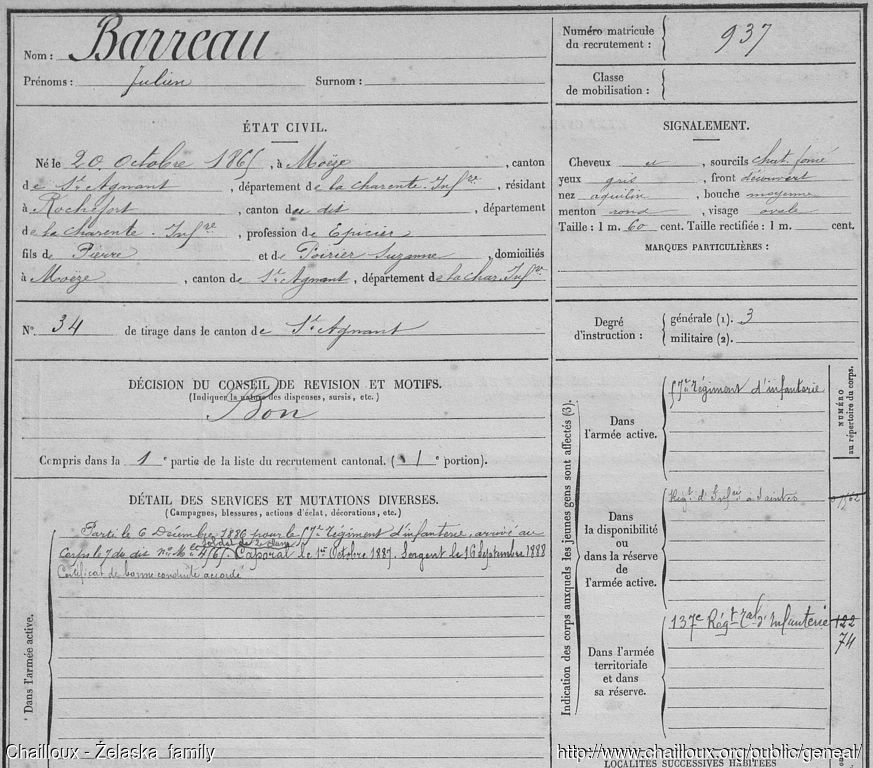 Nom : Barreau
Prénoms : Julien Surnom :
Numéro matricule
du recrutement : 937
Classe
de mobilisation :
ÉTAT CIVIL.
Né le 20 Octobre 1865, à Moëze, canton
de St Agnant, département de la Charente Infre, résidant
à Rochefort, canton du dit, département
de la Charente Infre, profession de Epicier
fils de Pierre et de Poirier Suzanne, domiciliés
à Moëze, canton de St Agnant, département de la Char. Infre
No. 34 de tirage dans le canton de St Agnant
SIGNALEMENT.
Cheveux et, sourcils chat. foncé
yeux gris, front découvert
nez aquilin, bouche moyenne
menton rond, visage ovale
Taille : 1 m. 60 cent. Taille rectifiée : 1 m. cent.
MARQUES PARTICULIÈRES :
Degré
d'instruction :
générale (1). 3
militaire (2).
DÉCISION DU CONSEIL DE REVISION ET MOTIFS.
(Indiquer la nature des dispenses, sursis, etc.)
Bon
Compris dans la 1e partie de la liste du recrutement cantonal. (1e portion).
DÉTAIL DES SERVICES ET MUTATIONS DIVERSES.
(Campagnes, blessures, actions d'éclat, décorations, etc.)
Dans l'armée active.
Parti le 6 Décembre 1886 pour le 57e Régiment d'infanterie, arrivé au
soldat de 2e classe
Corps le 7 du dit no Mle Caporal le 1er Octobre 1887. Sergent le 16 Septembre 1888
Certificat de bonne conduite accordé
Indication des corps auxquels les jeunes gens sont affectés (3).
NUMÉRO
au répertoire du corps.
Dans
l'armée active.
57e Régiment d'infanterie
Dans
la disponibilité
ou
dans la réserve
de
l'armée active.
Régt d'Infrie à Saintes
Dans l'armée
territoriale
et dans
sa réserve.
137e Régt Tal d'Infanterie 122
74
LOCALITÉS SUCCESSIVES HABITÉES
Chailloux - Żelaska family
http://www.chailloux.org/public/geneal/